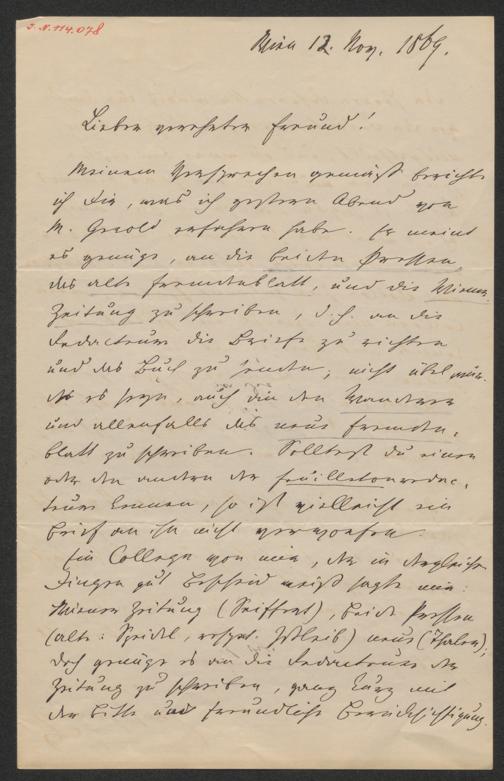 J.N. 114.078
Wien 12. Nov. 1869.
Lieber verehrter Freund!
Meinem Versprechen gemäß berichte
ich Dir, was ich gestern Abend von
M. erfahren habe. Er meint
es genüge, an die beiden Pressen,
das alte Fremdenblatt, und die Wiener
Zeitung zu schreiben, d. h. an die
Redacteure die Briefe zu richten
und das Buch zu senden; nicht übel wür-
de es seyn, auch an den Wanderer
und allenfalls das neue Fremden-
blatt zu schreiben. Solltest Du einen
oder den anderen der Feuilletonredac-
teure kennen, so ist vielleicht ein
Brief an ihn nicht verworfen.
Ein College von mir, der in dergleichen
Dingen gut Bescheid weiß sagte mir:
Wiener Zeitung (Seiffert), beide Pressen
(alte: Speidel, ) neue (Thaler);
doch genüge es an die Redacteure der
Zeitung zu schreiben, ganz kurz mit
der Bitte um freundliche Berücksichtigung.